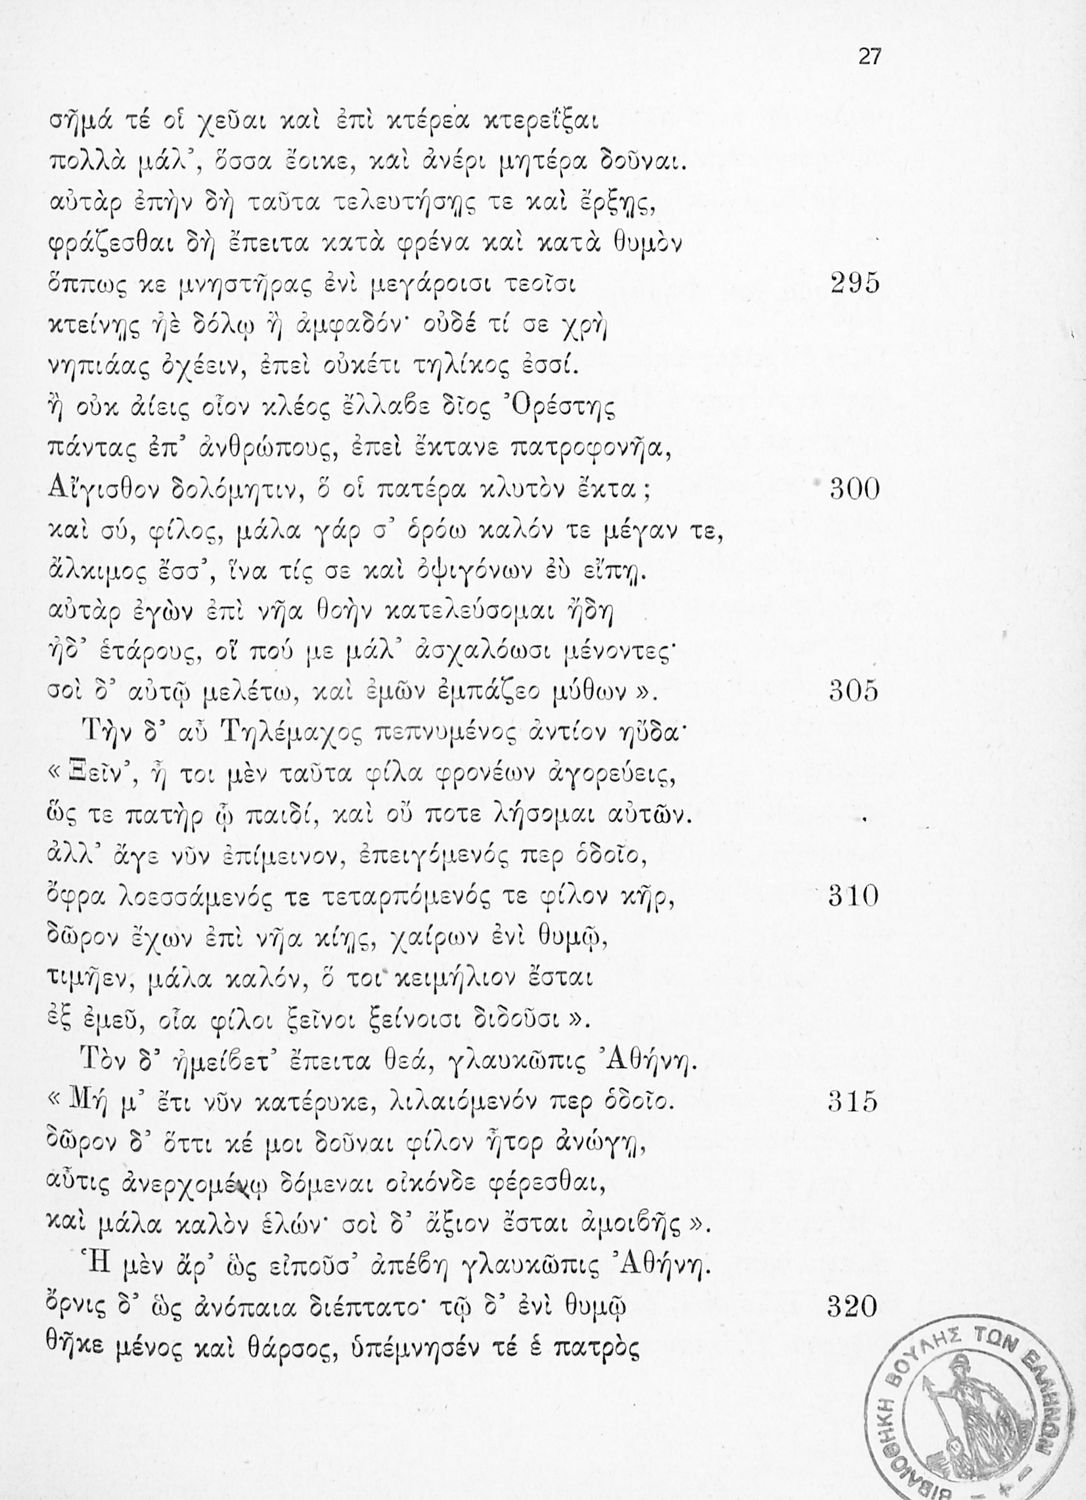 27
σῆμά τέ οἱ χεῦαι καὶ ἐπὶ κτέρεα κτερεΐξαι
πολλὰ μάλ’, ὅσσα ἔοικε, καὶ ἀνέρι μητέρα δοῦναι.
αὐτὰρ ἐπὴν δὴ ταῦτα τελευτήσῃς τε καὶ ἔρξῃς,
φράζεσθαι δὴ ἔπειτα κατὰ φρένα καὶ κατὰ θυμὸν
ὅππως κε μνηστῆρας ἐνὶ μεγάροισι τεοῖσι 295
κτείνῃς ἠὲ δόλῳ ἢ ἀμφαδόν· οὐδέ τί σε χρὴ
νηπιάας ὀχέειν, ἐπεὶ οὐκέτι τηλίκος ἐσσί.
ἢ οὐκ ἀίεις οἷον κλέος ἔλλαβε δῖος Ὀρέστης
πάντας ἐπ’ ἀνθρώπους, ἐπεὶ ἔκτανε πατροφονῆα,
Αἴγισθον δολόμητιν, ὅ οἱ πατέρα κλυτὸν ἔκτα; 300
καὶ σύ, φίλος, μάλα γάρ σ’ ὁρόω καλόν τε μέγαν τε,
ἄλκιμος ἔσσ’, ἵνα τίς σε καὶ ὀψιγόνων ἐὺ εἴπῃ.
αὐτὰρ ἐγὼν ἐπὶ νῆα θοὴν κατελεύσομαι ἤδη
ἠδ’ ἑτάρους, οἵ πού με μάλ’ ἀσχαλόωσι μένοντες·
σοὶ δ’ αὐτῷ μελέτω, καὶ ἐμῶν ἐμπάζεο μύθων ». 305
Τὴν δ’ αὖ Τηλέμαχος πεπνυμένος ἀντίον ηὔδα·
« Ξεῖν’, ἦ τοι μὲν ταῦτα φίλα φρονέων ἀγορεύεις,
ὥς τε πατὴρ ᾧ παιδί, καὶ οὔ ποτε λήσομαι αὐτῶν.
ἀλλ’ ἄγε νῦν ἐπίμεινον, ἐπειγόμενός περ ὁδοῖο,
ὄφρα λοεσσάμενός τε τεταρπόμενός τε φίλον κῆρ, 310
δῶρον ἔχων ἐπὶ νῆα κίῃς, χαίρων ἐνὶ θυμῷ,
τιμῆεν, μάλα καλόν, ὅ τοι κειμήλιον ἔσται
ἐξ ἐμεῦ, οἷα φίλοι ξεῖνοι ξείνοισι διδοῦσι ».
Τὸν δ’ ἠμείβετ’ ἔπειτα θεά, γλαυκῶπις Ἀθήνη.
« Μή μ’ ἔτι νῦν κατέρυκε, λιλαιόμενόν περ ὁδοῖο. 315
δῶρον δ’ ὅττι κέ μοι δοῦναι φίλον ἦτορ ἀνώγῃ,
αὖτις ἀνερχομένῳ δόμεναι οἰκόνδε φέρεσθαι,
καὶ μάλα καλὸν ἑλών· σοὶ δ’ ἄξιον ἔσται ἀμοιβῆς ».
Ἡ μὲν ἄρ’ ὣς εἰποῦσ’ ἀπέβη γλαυκῶπις Ἀθήνη.
ὄρνις δ’ ὣς ἀνόπαια διέπτατο· τῷ δ’ ἐνὶ θυμῷ 320
θῆκε μένος καὶ θάρσος, ὑπέμνησέν τέ ἑ πατρὸς
ΒΙΒΛΙΟΘΗΚΗ ΒΟΥΛΗΣ ΤΩΝ ΕΛΛΗΝΩΝ